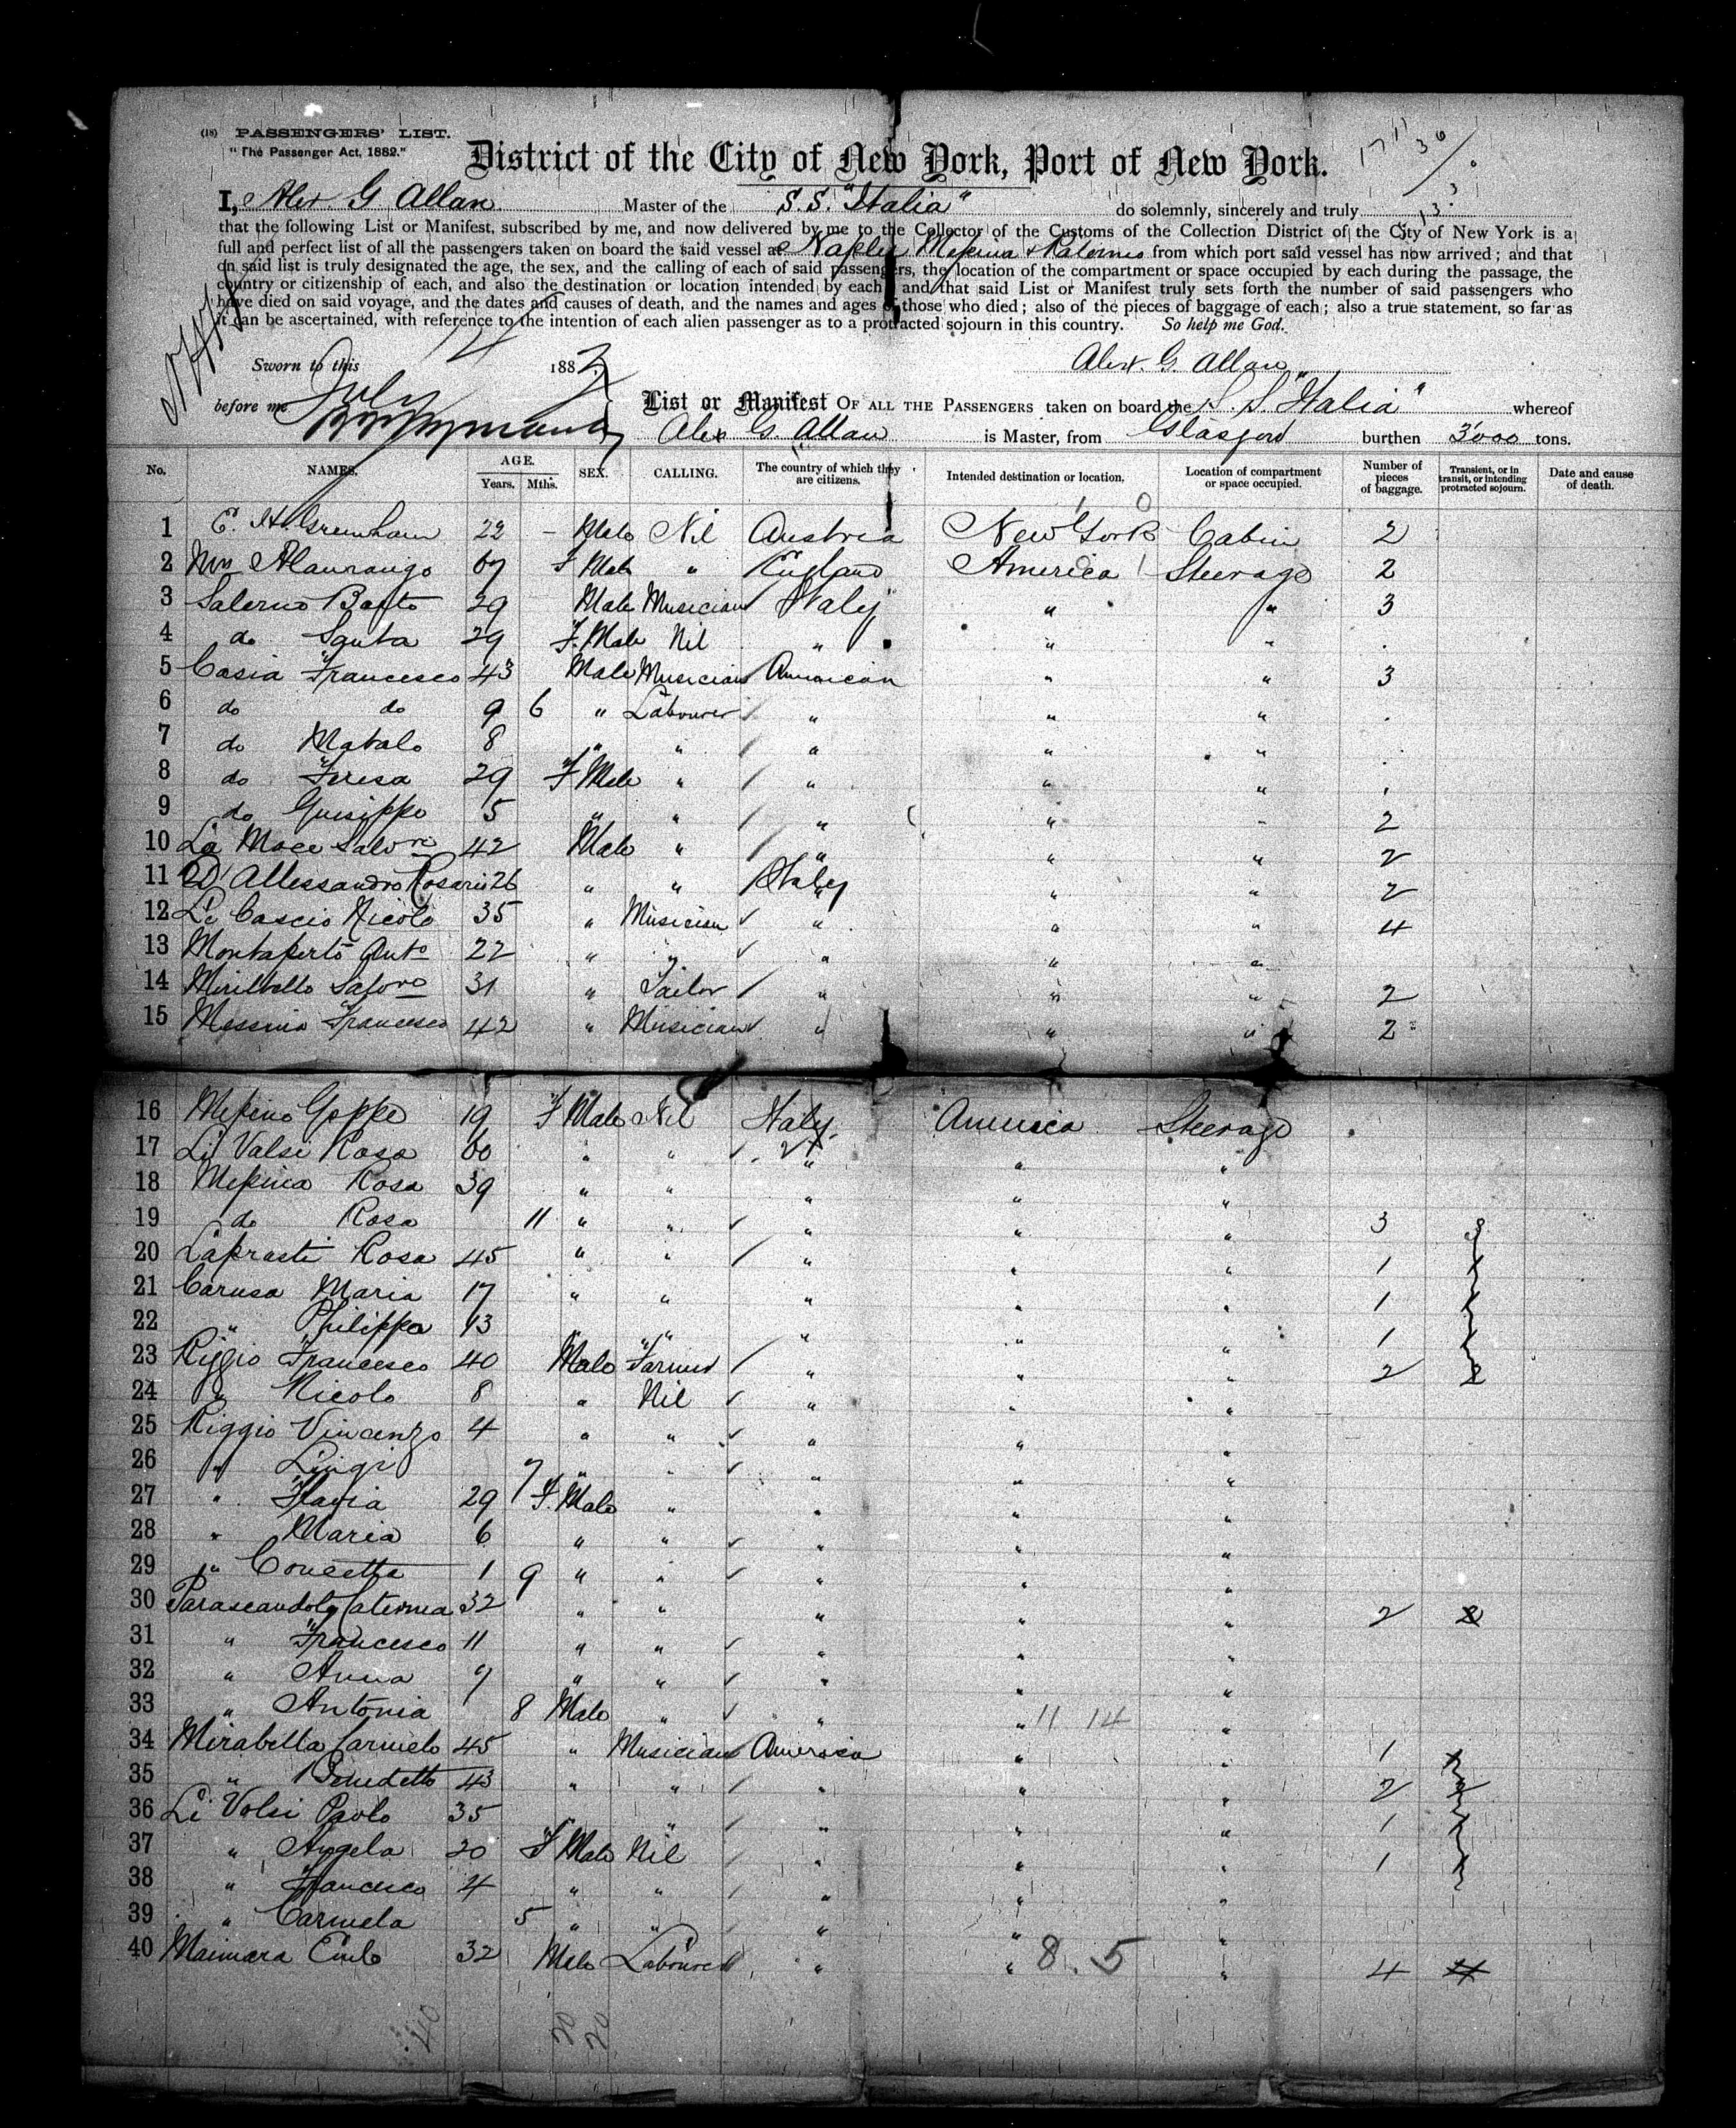 (18) PASSENGERS' LIST.
"The Passenger Act, 1882."
District of the City of New York, Port of New York.
I, Alex G Allan Master of the S.S. "Italia" do solemnly, sincerely and truly
that the following List or Manifest, subscribed by me, and now delivered by me to the Collector of the Customs of the Collection District of the City of New York is a
full and perfect list of all the passengers taken on board the said vessel at Naples Messina & Palermo from which port said vessel has now arrived; and that
on said list is truly designated the age, the sex, and the calling of each of said passengers, the location of the compartment or space occupied by each during the passage, the
country or citizenship of each, and also the destination or location intended by each, and that said List or Manifest truly sets forth the number of said passengers who
have died on said voyage, and the dates and causes of death, and the names and ages of those who died; also of the pieces of baggage of each; also a true statement, so far as
it can be ascertained, with reference to the intention of each alien passenger as to a protracted sojourn in this country. So help me God.
Sworn to this 188 Alex. G. Allan
before me July List or Manifest OF ALL THE PASSENGERS taken on board the S.S. "Italia" whereof
Alex G. Allan is Master, from Glasgow burthen 3000 tons.
No. NAMES. AGE. Years. Mths. SEX. CALLING. The country of which they are citizens. Intended destination or location. Location of compartment or space occupied. Number of pieces of baggage. Transient, or in transit, or intending protracted sojourn. Date and cause of death.
1 E. 22 - Male Nil Austria New York Cabin 2
2 Mrs 67 F Male " England America Steerage 2
3 Salerno Bapto 29 Male Musician Italy " " 3
4 do Santa 29 F. Male Nil " " "
5 Casia Francesco 43 Male Musician American " " 3
6 do do 9 6 " Labourer " " "
7 do Matalo 8 " " " " "
8 do Teresa 29 F Male " " " "
9 do Guisippe 5 " " " " " 2
10 La Mace Salvre 42 Male " " " " 2
11 D'Allessandro Rosario 26 " " Italy " " 2
12 Lo Cascio Nicolo 35 " Musician " " " 4
13 Montaperto Anto 22 " " " " "
14 Miribello Salvro 31 " Tailor " " " 2
15 Messina Francesco 42 " Musician " " " 2
16 Messino Goppe 19 F Male Nil Italy America Steerage
17 Li Valsi Rosa 60 " " " " "
18 Messina Rosa 39 " " " " "
19 do Rosa 11 " " " " " 3 3
20 Laprasti Rosa 45 " " " " " 1 1
21 Carusa Maria 17 " " " " " 1 1
22 " Philippa 13 " " " " " 1 1
23 Riggio Francesco 40 Male Farmer " " " 2 2
24 " Nicolo 8 " Nil " " "
25 Riggio Vincenzo 4 " " " " "
26 " Luigi 7 " " " " "
27 " Flavia 29 F. Male " " " "
28 " Maria 6 " " " " "
29 " Concetta 1 9 " " " " "
30 Parascandola Caterina 32 " " " " " 2 2
31 " Francesco 11 " " " " "
32 " Anna 7 " " " " "
33 " Antonia 8 Male " " " 11 14 "
34 Mirabella Carmelo 45 " Musician America " " 1 1
35 " Benedetto 43 " " " " " 2 2
36 Li Volsi Paolo 35 " " " " 1 1
37 " Angela 20 F Male Nil " " " 1 1
38 " Francesco 4 " " " " "
39 " Carmela 5 " " " " "
40 Maimara 32 Male Labourer " " 8. 5 " 4 4
40 20 20